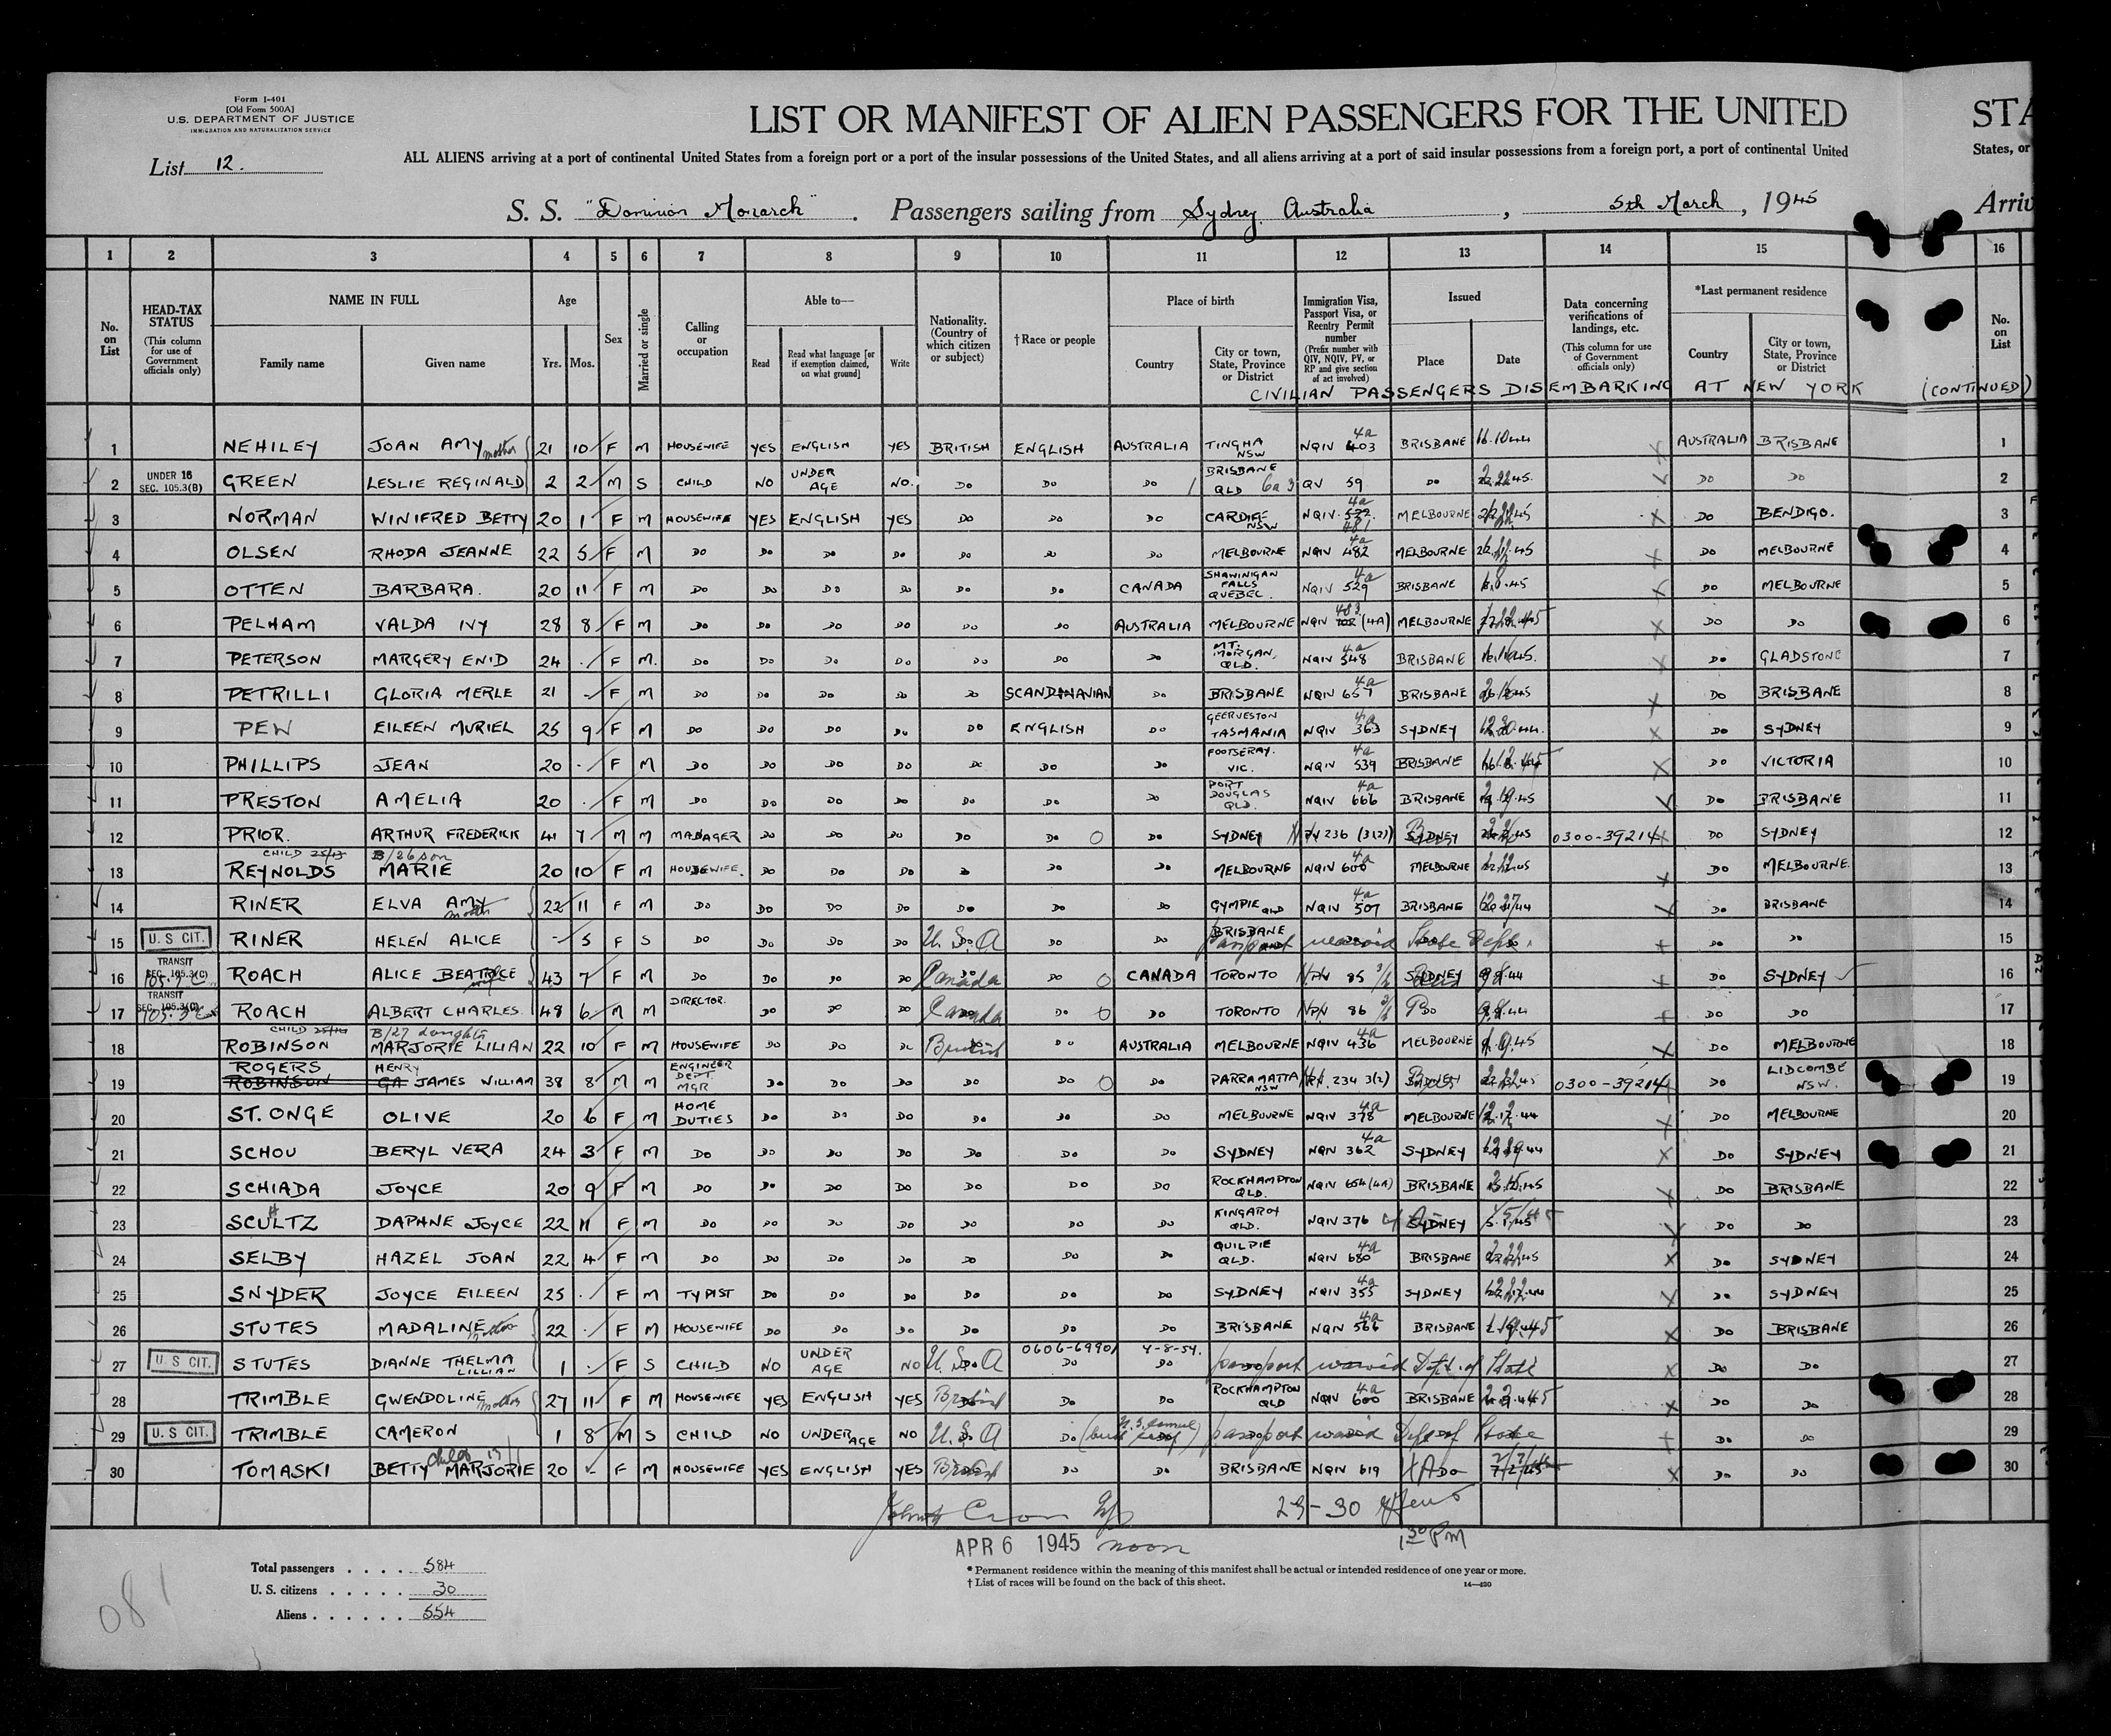 Form I-401
[Old Form 500A]
U.S. DEPARTMENT OF JUSTICE
IMMIGRATION AND NATURALIZATION SERVICE
List 12.
LIST OR MANIFEST OF ALIEN PASSENGERS FOR THE UNITED STA
ALL ALIENS arriving at a port of continental United States from a foreign port or a port of the insular possessions of the United States, and all aliens arriving at a port of said insular possessions from a foreign port, a port of continental United States, or
S. S. "Dominion Monarch". Passengers sailing from Sydney Australia, 5th March, 1945 Arriv
1 2 3 4 5 6 7 8 9 10 11 12 13 14 15 16
No. on List
HEAD-TAX STATUS (This column for use of Government officials only)
NAME IN FULL
Family name Given name
Age
Yrs. Mos.
Sex
Married or single
Calling or occupation
Able to—
Read Read what language [or if exemption claimed, on what ground] Write
Nationality. (Country of which citizen or subject)
†Race or people
Place of birth
Country City or town, State, Province or District
Immigration Visa, Passport Visa, or Reentry Permit number (Prefix number with QIV, NQIV, PV, or RP and give section of act involved)
Issued
Place Date
Data concerning verifications of landings, etc. (This column for use of Government officials only)
*Last permanent residence
Country City or town, State, Province or District
No. on List
CIVILIAN PASSENGERS DISEMBARKING AT NEW YORK (CONTINUED)
1 NEHILEY JOAN AMY mother 21 10 F M HOUSEWIFE YES ENGLISH YES BRITISH ENGLISH AUSTRALIA TINGHA NSW NQIV 4a 403 BRISBANE AUSTRALIA BRISBANE 1
2 UNDER 16 SEC. 105.3(B) GREEN LESLIE REGINALD 2 2 M S CHILD NO UNDER AGE NO. DO DO DO BRISBANE QLD 6a3 QV 59 DO DO DO 2
3 NORMAN WINIFRED BETTY 20 1 F M HOUSEWIFE YES ENGLISH YES DO DO DO CARDIFF NSW NQIV 4a 481 MELBOURNE DO BENDIGO. 3
4 OLSEN RHODA JEANNE 22 5 F M DO DO DO DO DO DO DO MELBOURNE NQIV 4a 482 MELBOURNE DO MELBOURNE 4
5 OTTEN BARBARA. 20 11 F M DO DO DO DO DO DO CANADA SHAWINIGAN FALLS QUEBEC. NQIV 4a 529 BRISBANE DO MELBOURNE 5
6 PELHAM VALDA IVY 28 8 F M DO DO DO DO DO DO AUSTRALIA MELBOURNE NQIV 483 (4A) MELBOURNE DO DO 6
7 PETERSON MARGERY ENID 24 F M. DO DO DO DO DO DO DO MT. MORGAN, QLD. NQIV 4a 548 BRISBANE DO GLADSTONE 7
8 PETRILLI GLORIA MERLE 21 - F M DO DO DO DO DO SCANDINAVIAN DO BRISBANE NQIV 4a 657 BRISBANE DO BRISBANE 8
9 PEW EILEEN MURIEL 25 9 F M DO DO DO DO DO ENGLISH DO GEERVESTON TASMANIA NQIV 4a 363 SYDNEY DO SYDNEY 9
10 PHILLIPS JEAN 20 F M DO DO DO DO DO DO DO FOOTSERAY. VIC. NQIV 4a 539 BRISBANE DO VICTORIA 10
11 PRESTON AMELIA 20 F M DO DO DO DO DO DO DO PORT DOUGLAS QLD. NQIV 4a 666 BRISBANE DO BRISBANE 11
12 PRIOR. ARTHUR FREDERICK 41 7 M M MANAGER DO DO DO DO DO DO SYDNEY PV 236 (3(2)) SYDNEY 0300-39214 DO SYDNEY 12
CHILD 25/13 B/26 son
13 REYNOLDS MARIE 20 10 F M HOUSEWIFE. DO DO DO DO DO DO MELBOURNE NQIV 4a 600 MELBOURNE DO MELBOURNE. 13
14 RINER ELVA AMY mother 22 11 F M DO DO DO DO DO DO DO GYMPIE QLD NQIV 4a 507 BRISBANE DO BRISBANE 14
15 U. S CIT. RINER HELEN ALICE - 5 F S DO DO DO DO U.S.A DO DO BRISBANE passport waived State Dept. DO DO 15
16 TRANSIT SEC. 105.3(C) ROACH ALICE BEATRICE wife 43 7 F M DO DO DO DO Canada DO CANADA TORONTO 85 SYDNEY DO SYDNEY 16
17 TRANSIT SEC. 105.3(C) ROACH ALBERT CHARLES. 48 6 M M DIRECTOR. DO DO DO Canada DO DO TORONTO 86 DO DO DO 17
CHILD 25/14 B/27 daughter
18 ROBINSON MARJORIE LILIAN 22 10 F M HOUSEWIFE DO DO DO British DO AUSTRALIA MELBOURNE NQIV 4a 436 MELBOURNE DO MELBOURNE 18
19 ROGERS ROBINSON HENRY JAMES WILLIAM 38 8 M M ENGINEER DEPT. MGR DO DO DO DO DO DO PARRAMATTA NSW 234 3(2) SYDNEY 0300-39214 DO LIDCOMBE NSW. 19
20 ST. ONGE OLIVE 20 6 F M HOME DUTIES DO DO DO DO DO DO MELBOURNE NQIV 4a 378 MELBOURNE DO MELBOURNE 20
21 SCHOU BERYL VERA 24 3 F M DO DO DO DO DO DO DO SYDNEY NQIV 4a 362 SYDNEY DO SYDNEY 21
22 SCHIADA JOYCE 20 9 F M DO DO DO DO DO DO DO ROCKHAMPTON QLD. NQIV 654 (4A) BRISBANE DO BRISBANE 22
23 SCHULTZ DAPHNE JOYCE 22 11 F M DO DO DO DO DO DO DO KINGAROY QLD. NQIV 376 SYDNEY DO DO 23
24 SELBY HAZEL JOAN 22 4 F M DO DO DO DO DO DO DO QUILPIE QLD. NQIV 4a 680 BRISBANE DO SYDNEY 24
25 SNYDER JOYCE EILEEN 25 F M TYPIST DO DO DO DO DO DO SYDNEY NQIV 4a 355 SYDNEY DO SYDNEY 25
26 STUTES MADALINE mother 22 F M HOUSEWIFE DO DO DO DO DO DO BRISBANE NQIV 4a 566 BRISBANE DO BRISBANE 26
0606-69901 4-8-54.
27 U. S CIT. STUTES DIANNE THELMA LILLIAN 1 F S CHILD NO UNDER AGE NO U.S.A DO DO passport waived Dept. of State DO DO 27
28 TRIMBLE GWENDOLINE mother 27 11 F M HOUSEWIFE YES ENGLISH YES British DO DO ROCKHAMPTON QLD NQIV 4a 600 BRISBANE DO DO 28
29 U. S CIT. TRIMBLE CAMERON 1 8 M S CHILD NO UNDER AGE NO U.S.A DO passport waived Dept of State DO DO 29
30 TOMASKI BETTY MARJORIE 20 F M HOUSEWIFE YES ENGLISH YES British DO DO BRISBANE NQIV 619 DO DO DO 30
29-30
APR 6 1945 noon 1 30 PM
Total passengers . . . . 584
U. S. citizens . . . . . 30
Aliens . . . . . . 554
* Permanent residence within the meaning of this manifest shall be actual or intended residence of one year or more.
† List of races will be found on the back of this sheet. 14—430
081